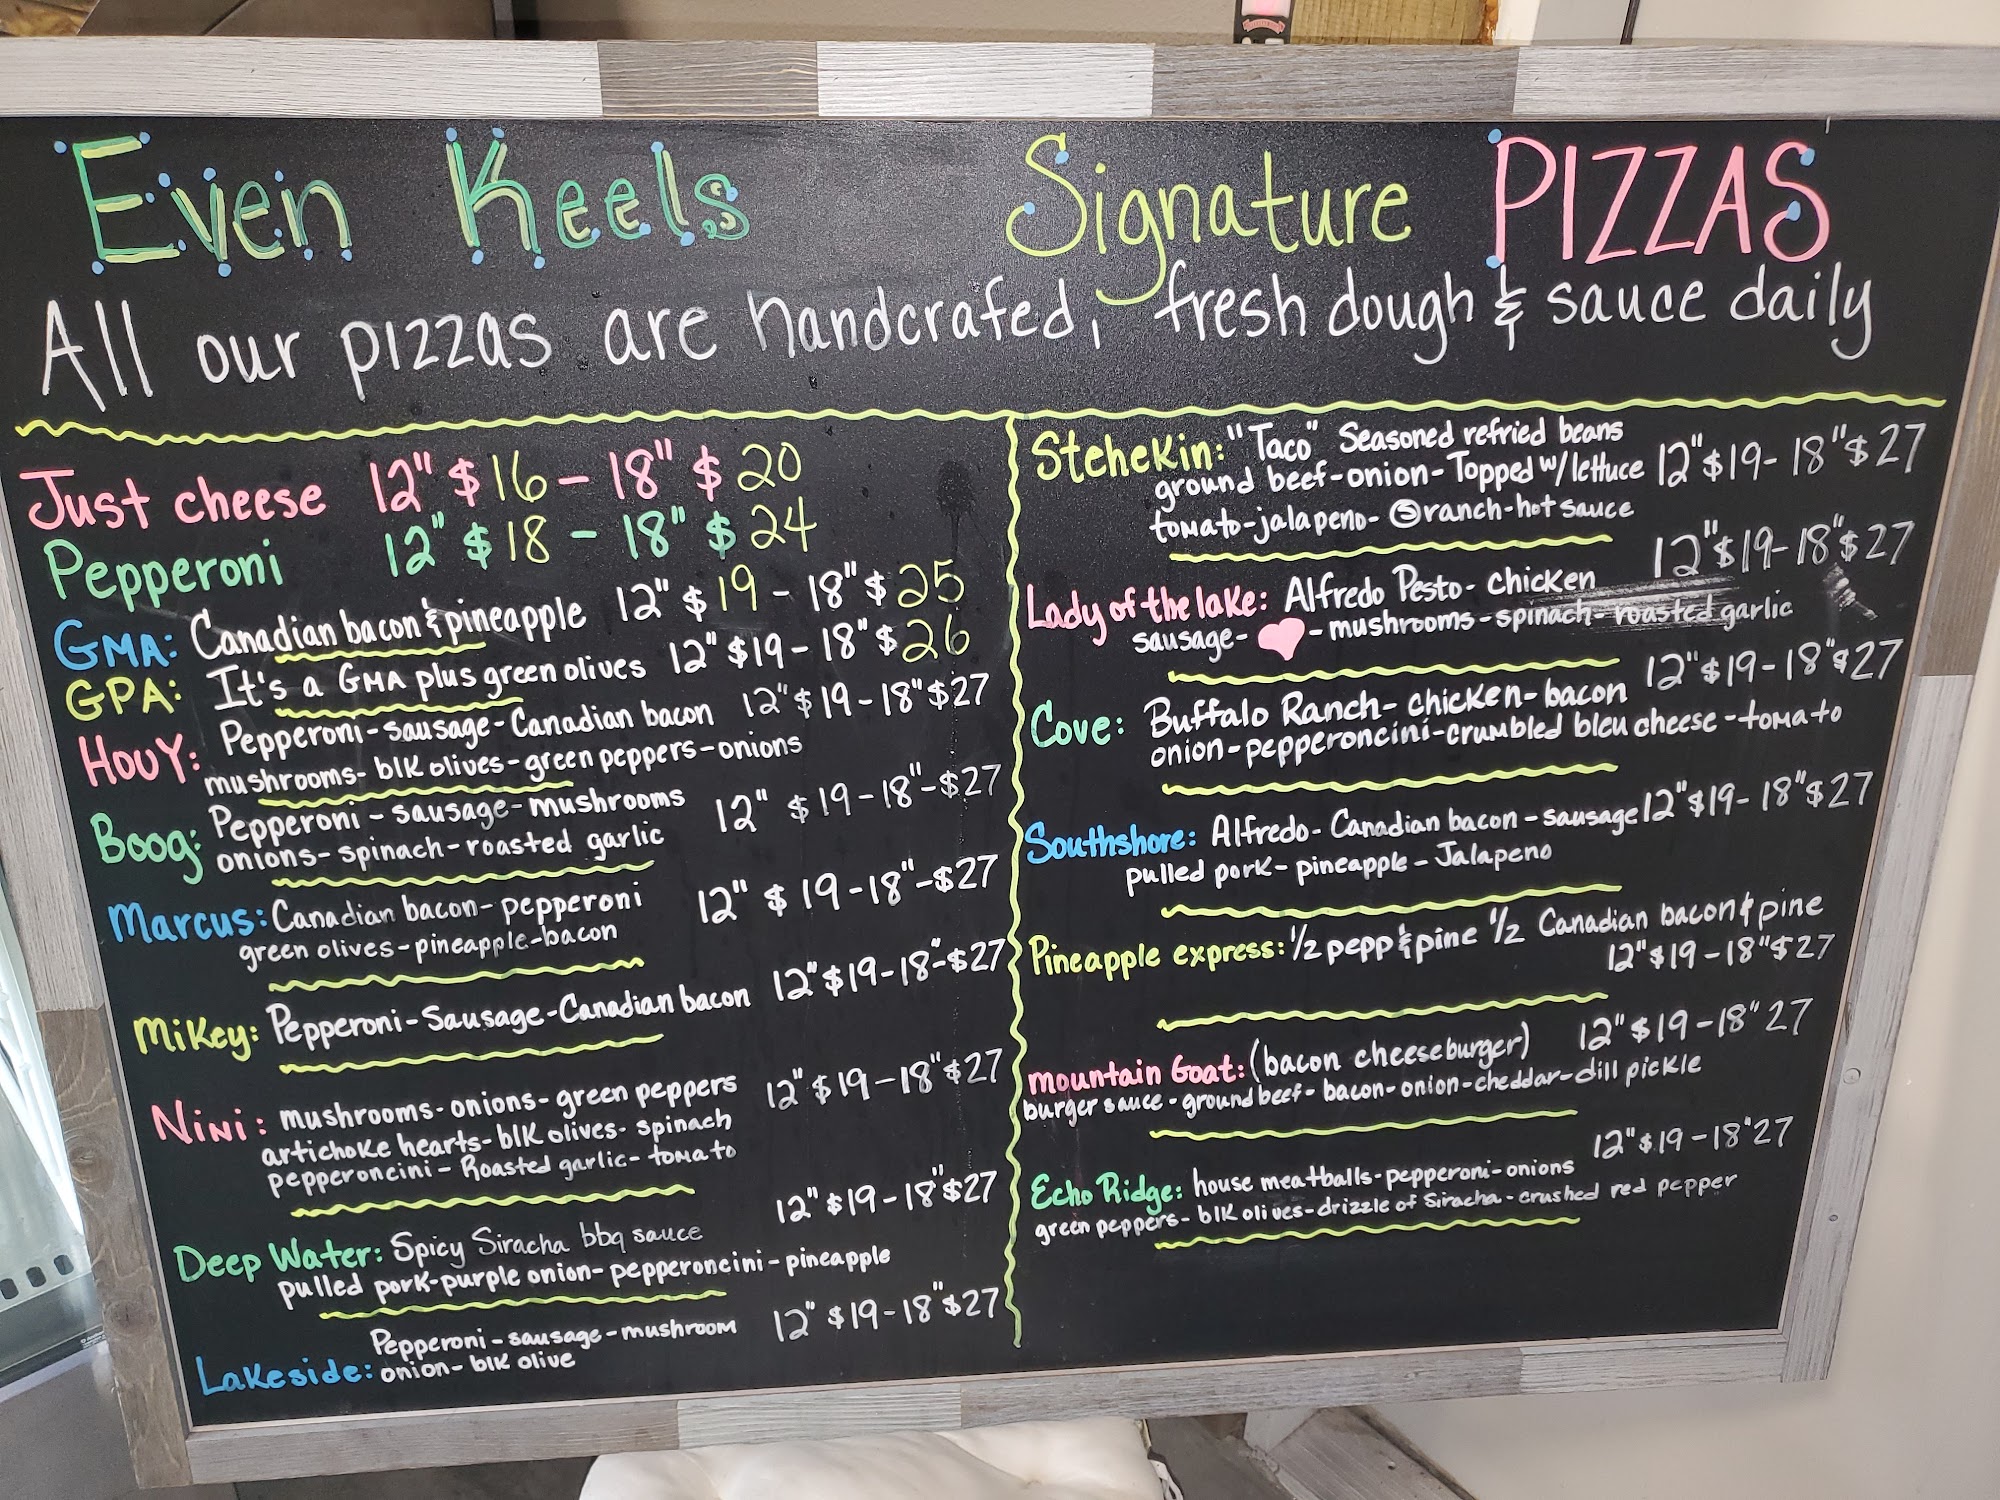 Even Keels Signature PIZZAS
All our pizzas are handcrafed, fresh dough & sauce daily
Just cheese 12" $16 - 18" $20
Pepperoni 12" $18 - 18" $24
GMA: Canadian bacon & pineapple 12" $19 - 18" $25
GPA: It's a GMA plus green olives 12" $19 - 18" $26
HOUY: Pepperoni - sausage - Canadian bacon 12" $19 - 18" $27
mushrooms - blk olives - green peppers - onions
Boog: Pepperoni - sausage - mushrooms 12" $19 - 18" - $27
onions - spinach - roasted garlic
Marcus: Canadian bacon - pepperoni 12" $19 - 18" - $27
green olives - pineapple - bacon
Mikey: Pepperoni - Sausage - Canadian bacon 12" $19 - 18" - $27
Nini: mushrooms - onions - green peppers 12" $19 - 18" $27
artichoke hearts - blk olives - spinach
pepperoncini - Roasted garlic - tomato
Deep Water: Spicy Siracha bbq sauce 12" $19 - 18" $27
pulled pork - purple onion - pepperoncini - pineapple
Pepperoni - sausage - mushroom 12" $19 - 18" $27
Lakeside: onion - blk olive
Stehekin: "Taco" Seasoned refried beans
ground beef - onion - Topped w/ lettuce 12" $19 - 18" $27
tomato - jalapeno - Ⓢ ranch - hot sauce
Lady of the lake: Alfredo Pesto - chicken 12" $19 - 18" $27
sausage - ♥ - mushrooms - spinach - roasted garlic
Cove: Buffalo Ranch - chicken - bacon 12" $19 - 18" $27
onion - pepperoncini - crumbled bleu cheese - tomato
Southshore: Alfredo - Canadian bacon - sausage 12" $19 - 18" $27
pulled pork - pineapple - Jalapeno
Pineapple express: 1/2 pepp & pine 1/2 Canadian bacon & pine
12" $19 - 18" $27
Mountain Goat: (bacon cheeseburger) 12" $19 - 18" 27
burger sauce - ground beef - bacon - onion - cheddar - dill pickle
Echo Ridge: house meatballs - pepperoni - onions 12" $19 - 18" 27
green peppers - blk olives - drizzle of Siracha - crushed red pepper